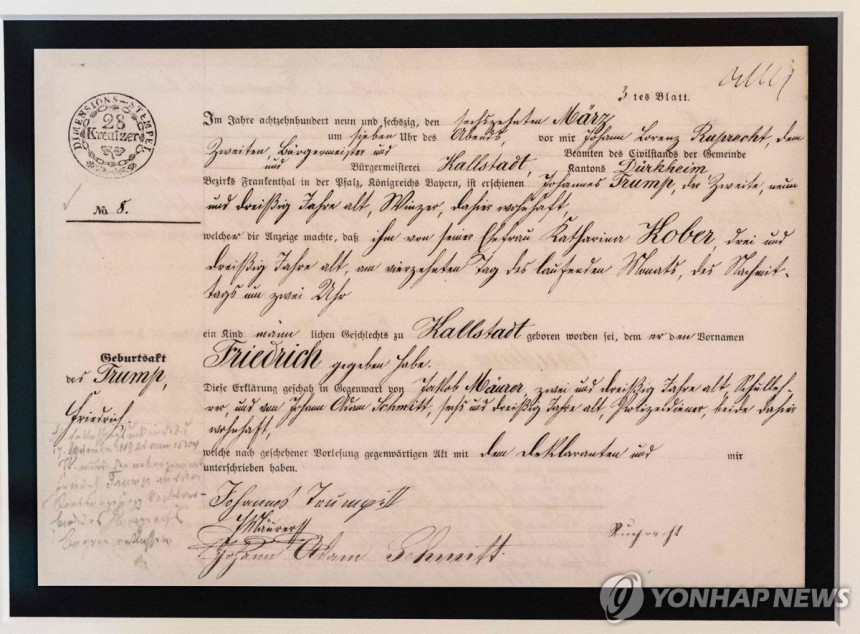 3 tes Blatt.
DIMENSIONS-STEMPEL
28
Kreutzer
Im Jahre achtzehnhundert neun und sechszig, den sechszehnten März
um sieben Uhr des Abends, vor mir Johann Lorenz Ruprecht, dem
Zweiten Bürgermeister und Beamten des Civilstands der Gemeinde
und Bürgermeisterei Kallstadt, Kantons Dürkheim
Bezirks Frankenthal in der Pfalz, Königreichs Bayern, ist erschienen Johannes Trump, der Zweite, neun
No. 8.
und dreißig Jahre alt, Winzer, dahier wohnhaft
welcher die Anzeige machte, daß ihm von seiner Ehefrau Katharina Kober, drei und
dreißig Jahre alt, am vierzehnten Tag des laufenden Monats, des Nachmit-
tags um zwei Uhr
ein Kind männlichen Geschlechts zu Kallstadt geboren worden sei, dem er den Vornamen
Geburtsakt
des Trump,
Friedrich
Friedrich gegeben habe.
Diese Erklärung geschah in Gegenwart von Jakob Mäurer, zwei und dreißig Jahre alt, Schulleh-
rer, und von Johann Adam Schmitt, sechs und dreißig Jahre alt, Polizeidiener, beide dahier
wohnhaft,
welche nach geschehener Vorlesung gegenwärtigen Akt mit dem Deklaranten und mir
unterschrieben haben.
Johannes Trump II
Mäurer
Johann Adam Schmitt.
Ruprecht
YONHAP NEWS